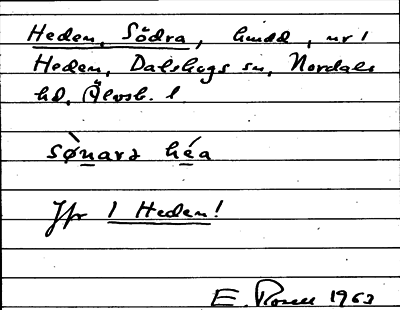 Heden, Södra, hmdd, nr 1
Heden, Dalskogs sn, Nordals
hd, Älvsb. l.
sø̀narə héa
Jfr 1 Heden!
E. Rosell 1963